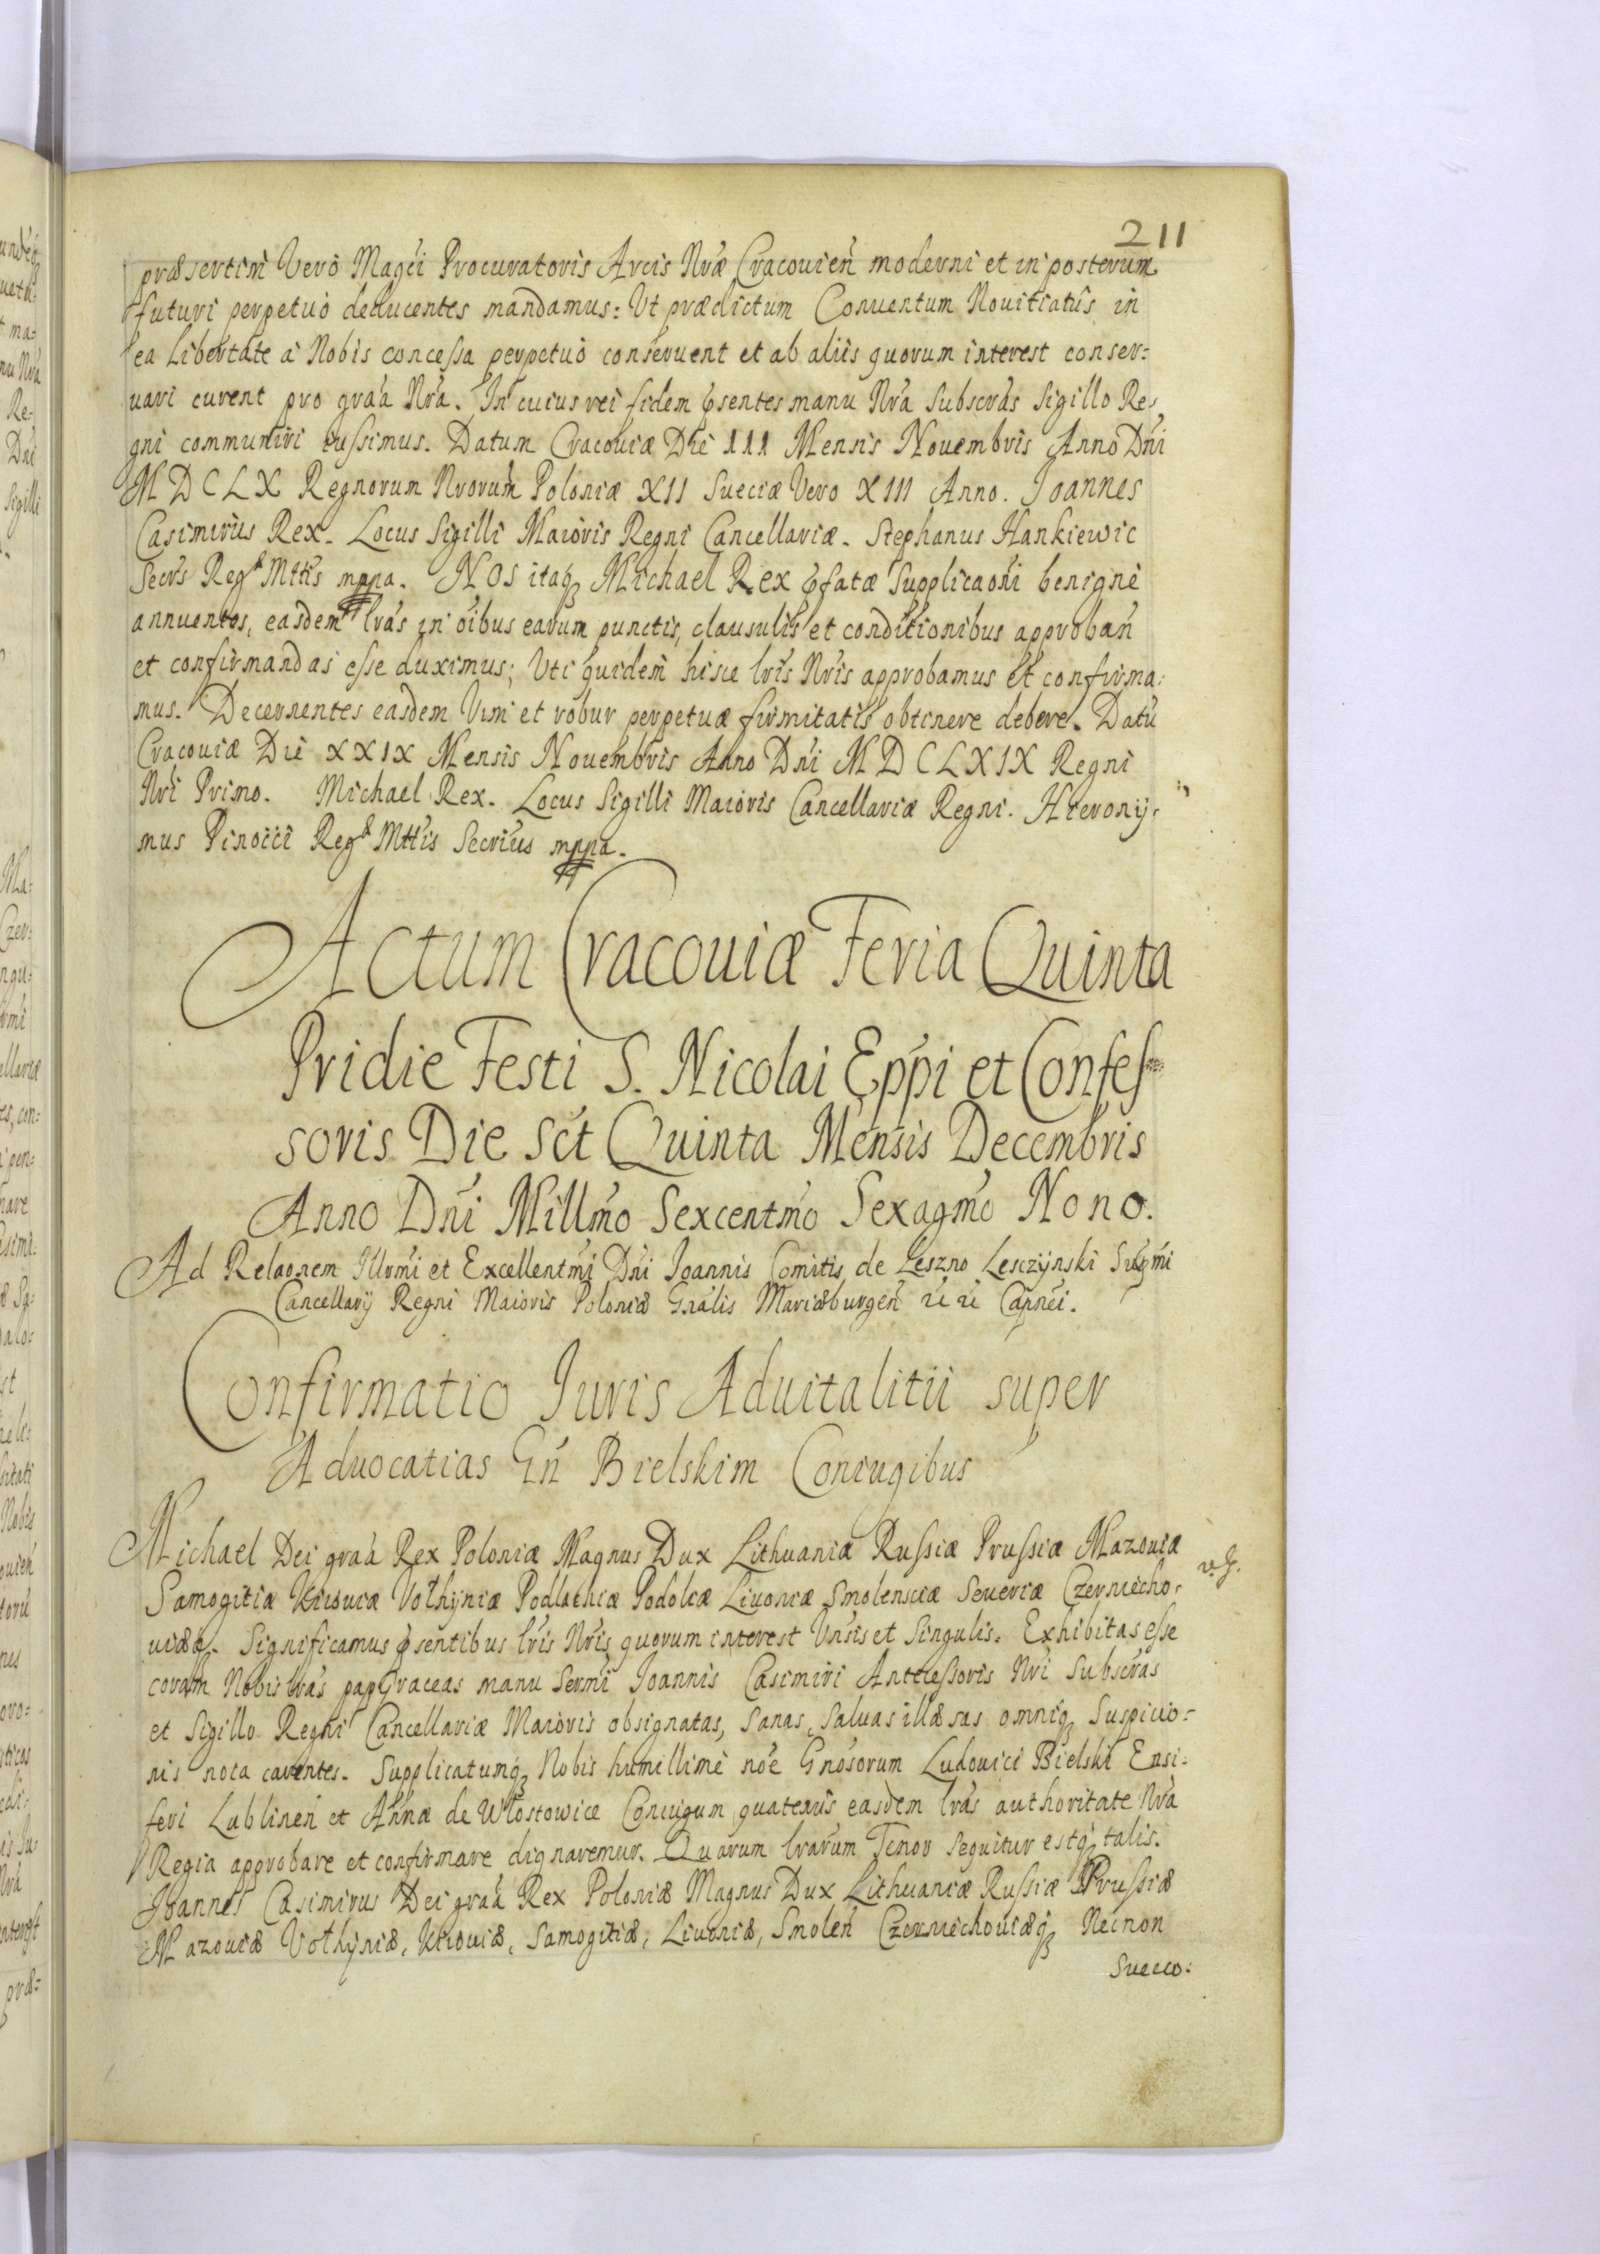 211
præsertim Verò Magci Procuratoris Arcis Nræ Cracouień moderni et in posterum
futuri perpetuò deducentes mandamus: Vt prædictum Conuentum Nouitiatûs in
ea Libertate à Nobis concessa perpetuò conseruent et ab aliis quorum interest conser:
uari curent pro graâ Nra. In cuius rei fidem psentes manu Nra Subscrás Sigillo Re:
gni communiri iussimus. Datum Cracouiæ Die III Mensis Nouembris Anno Dni
MDCLX Regnorum Nrorum Poloniæ XII Sueciæ Vero XIII Anno. Joannes
Casimirus Rex. Locus Sigilli Maioris Regni Cancellariæ. Stephanus Hankiewic
Secrs Reg Mttis mppa. NOS itaq Michael Rex pfatæ Supplicaoni benignè
annuentes, easdem lrás in oibus earum punctis, clausulis et conditionibus approbań
et confirmandas esse duximus; Vti quidem hisce lris Nris approbamus et confirma:
mus. Decernentes easdem Vim et robur perpetuæ firmitatis obtinere debere. Datu
Cracouiæ Die XXIX Mensis Nouembris Anno Dni MDCLXIX Regni
Nri Primo. Michael Rex. Locus Sigilli Maioris Cancellariæ Regni. Hierony:
mus Pinocci Reg Mttis Secrius mppa.
Actum Cracouiæ Feria Quinta
Pridie Festi S. Nicolai Eppi et Confes
soris Die sct Quinta Mensis Decembris
Anno Dni Millmo Sexcentmo Sexagmo Nono.
Ad Relaonem Illrmi et Excellentmi Dni Joannis Comitis de Leszno Lesczynski Supmi
Cancellarij Regni Maioris Poloniæ Gnalis Mariæburgeń Capnei.
Confirmatio Juris Aduitalitii super
Aduocatias Gń Bielskim Coniugibus
Michael Dei graâ Rex Poloniæ Magnus Dux Lithuaniæ Russiæ Prussiæ Mazouiæ
Samogitiæ Kiiouiæ Volhyniæ Podlachiæ Podoliæ Liuoniæ Smolensciæ Seueriæ Czerniecho:
uiæq. Significamus psentibus lris Nris quorum interest Vnsis et Singulis. Exhibitas esse
coram Nobis lrás papyraceas manu Sermi Joannis Casimiri Antecessoris Nri Subscrás
et Sigillo Regni Cancellariæ Maioris obsignatas, Sanas, Saluas illæsas omniq Suspicio:
nis nota carentes. Supplicatumq Nobis humillimè noe Gnosorum Ludouici Bielski Ensi:
feri Lublineń et Annæ de Włostowice Coniugum quatenus easdem lrás authoritate Nrâ
Regia approbare et confirmare dignaremur. Quarum lrarum Tenor sequitur estq talis.
Joannes Casimirus Dei graâ Rex Poloniæ Magnus Dux Lithuaniæ Russiæ Prussiæ
Mazouiæ Volhyniæ, Kiiouiæ, Samogitiæ, Liuoniæ, Smoleń Czerniechouiæq Necnon
Sueco: